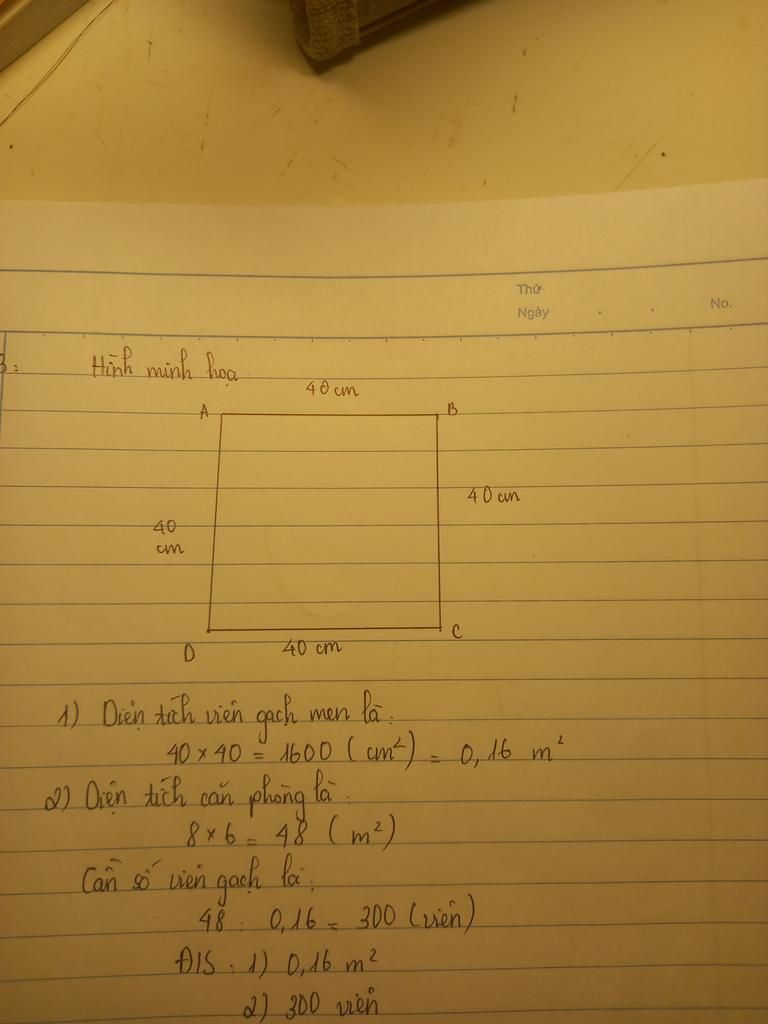 Thứ
Ngày . . No.
3: Hình minh hoạ
40 cm
A B
40 cm
40
cm
C
40 cm
D
1) Diện tích viên gạch men là:
40 × 40 = 1600 ( cm²) = 0,16 m²
2) Diện tích căn phòng là:
8 × 6 = 48 ( m²)
Cần số viên gạch là:
48 : 0,16 = 300 (viên)
Đ/S : 1) 0,16 m²
2) 300 viên